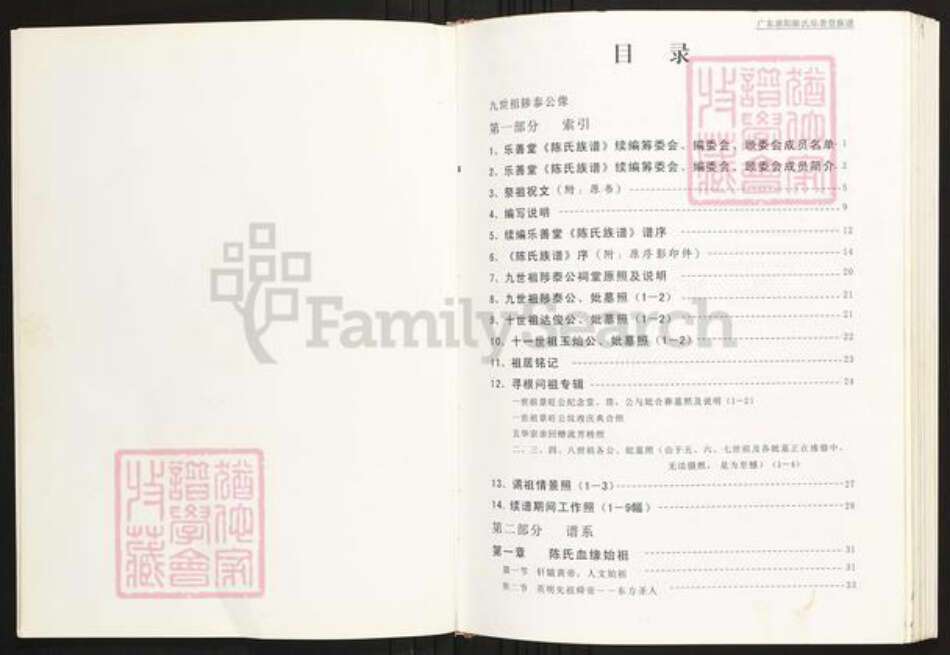 广东潮阳陈氏乐善堂族谱
目 录
九世祖陟泰公像
第一部分 索引
1、乐善堂《陈氏族谱》续编筹委会、编委会、顾委会成员名单 1
2、乐善堂《陈氏族谱》续编筹委会、编委会、顾委会成员简介 2
3、祭祖祝文（附：原书） 5
4、编写说明 9
5、续编乐善堂《陈氏族谱》谱序 12
6、《陈氏族谱》序（附：原序影印件） 14
7、九世祖陟泰公祠堂原照及说明 20
8、九世祖陟泰公、妣墓照（1－2） 21
9、十世祖达俊公、妣墓照（1－2） 21
10、十一世祖玉灿公、妣墓照（1－2） 22
11、祖居铭记 23
12、寻根问祖专辑 24
一世祖景旺公纪念堂、公与妣合葬墓照及说明（1－2）
一世祖景旺公庆典合照
二、三、四、八世祖各公、妣墓照（由于五、六、七世祖及各妣墓正在维修中，
无法摄照，是为至憾）（1－4）
13、谒祖情景照（1－3） 27
14、续谱期间工作照（1－9幅） 28
第二部分 谱系
第一章 陈氏血缘始祖 31
第一节 轩辕黄帝，人文始祖 31
第二节 英明先祖舜帝——东方圣人 33
FamilySearch
譜學會
收藏
譜學會
收藏